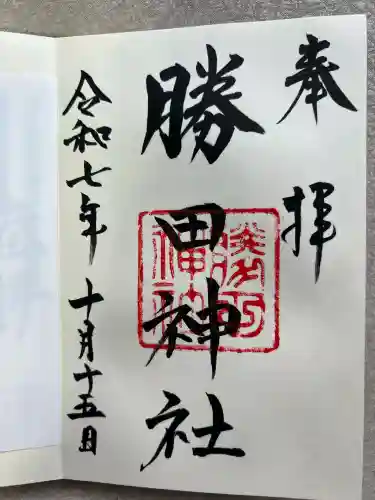 奉拝
勝田神社
令和七年十月十五日
勝田
神社